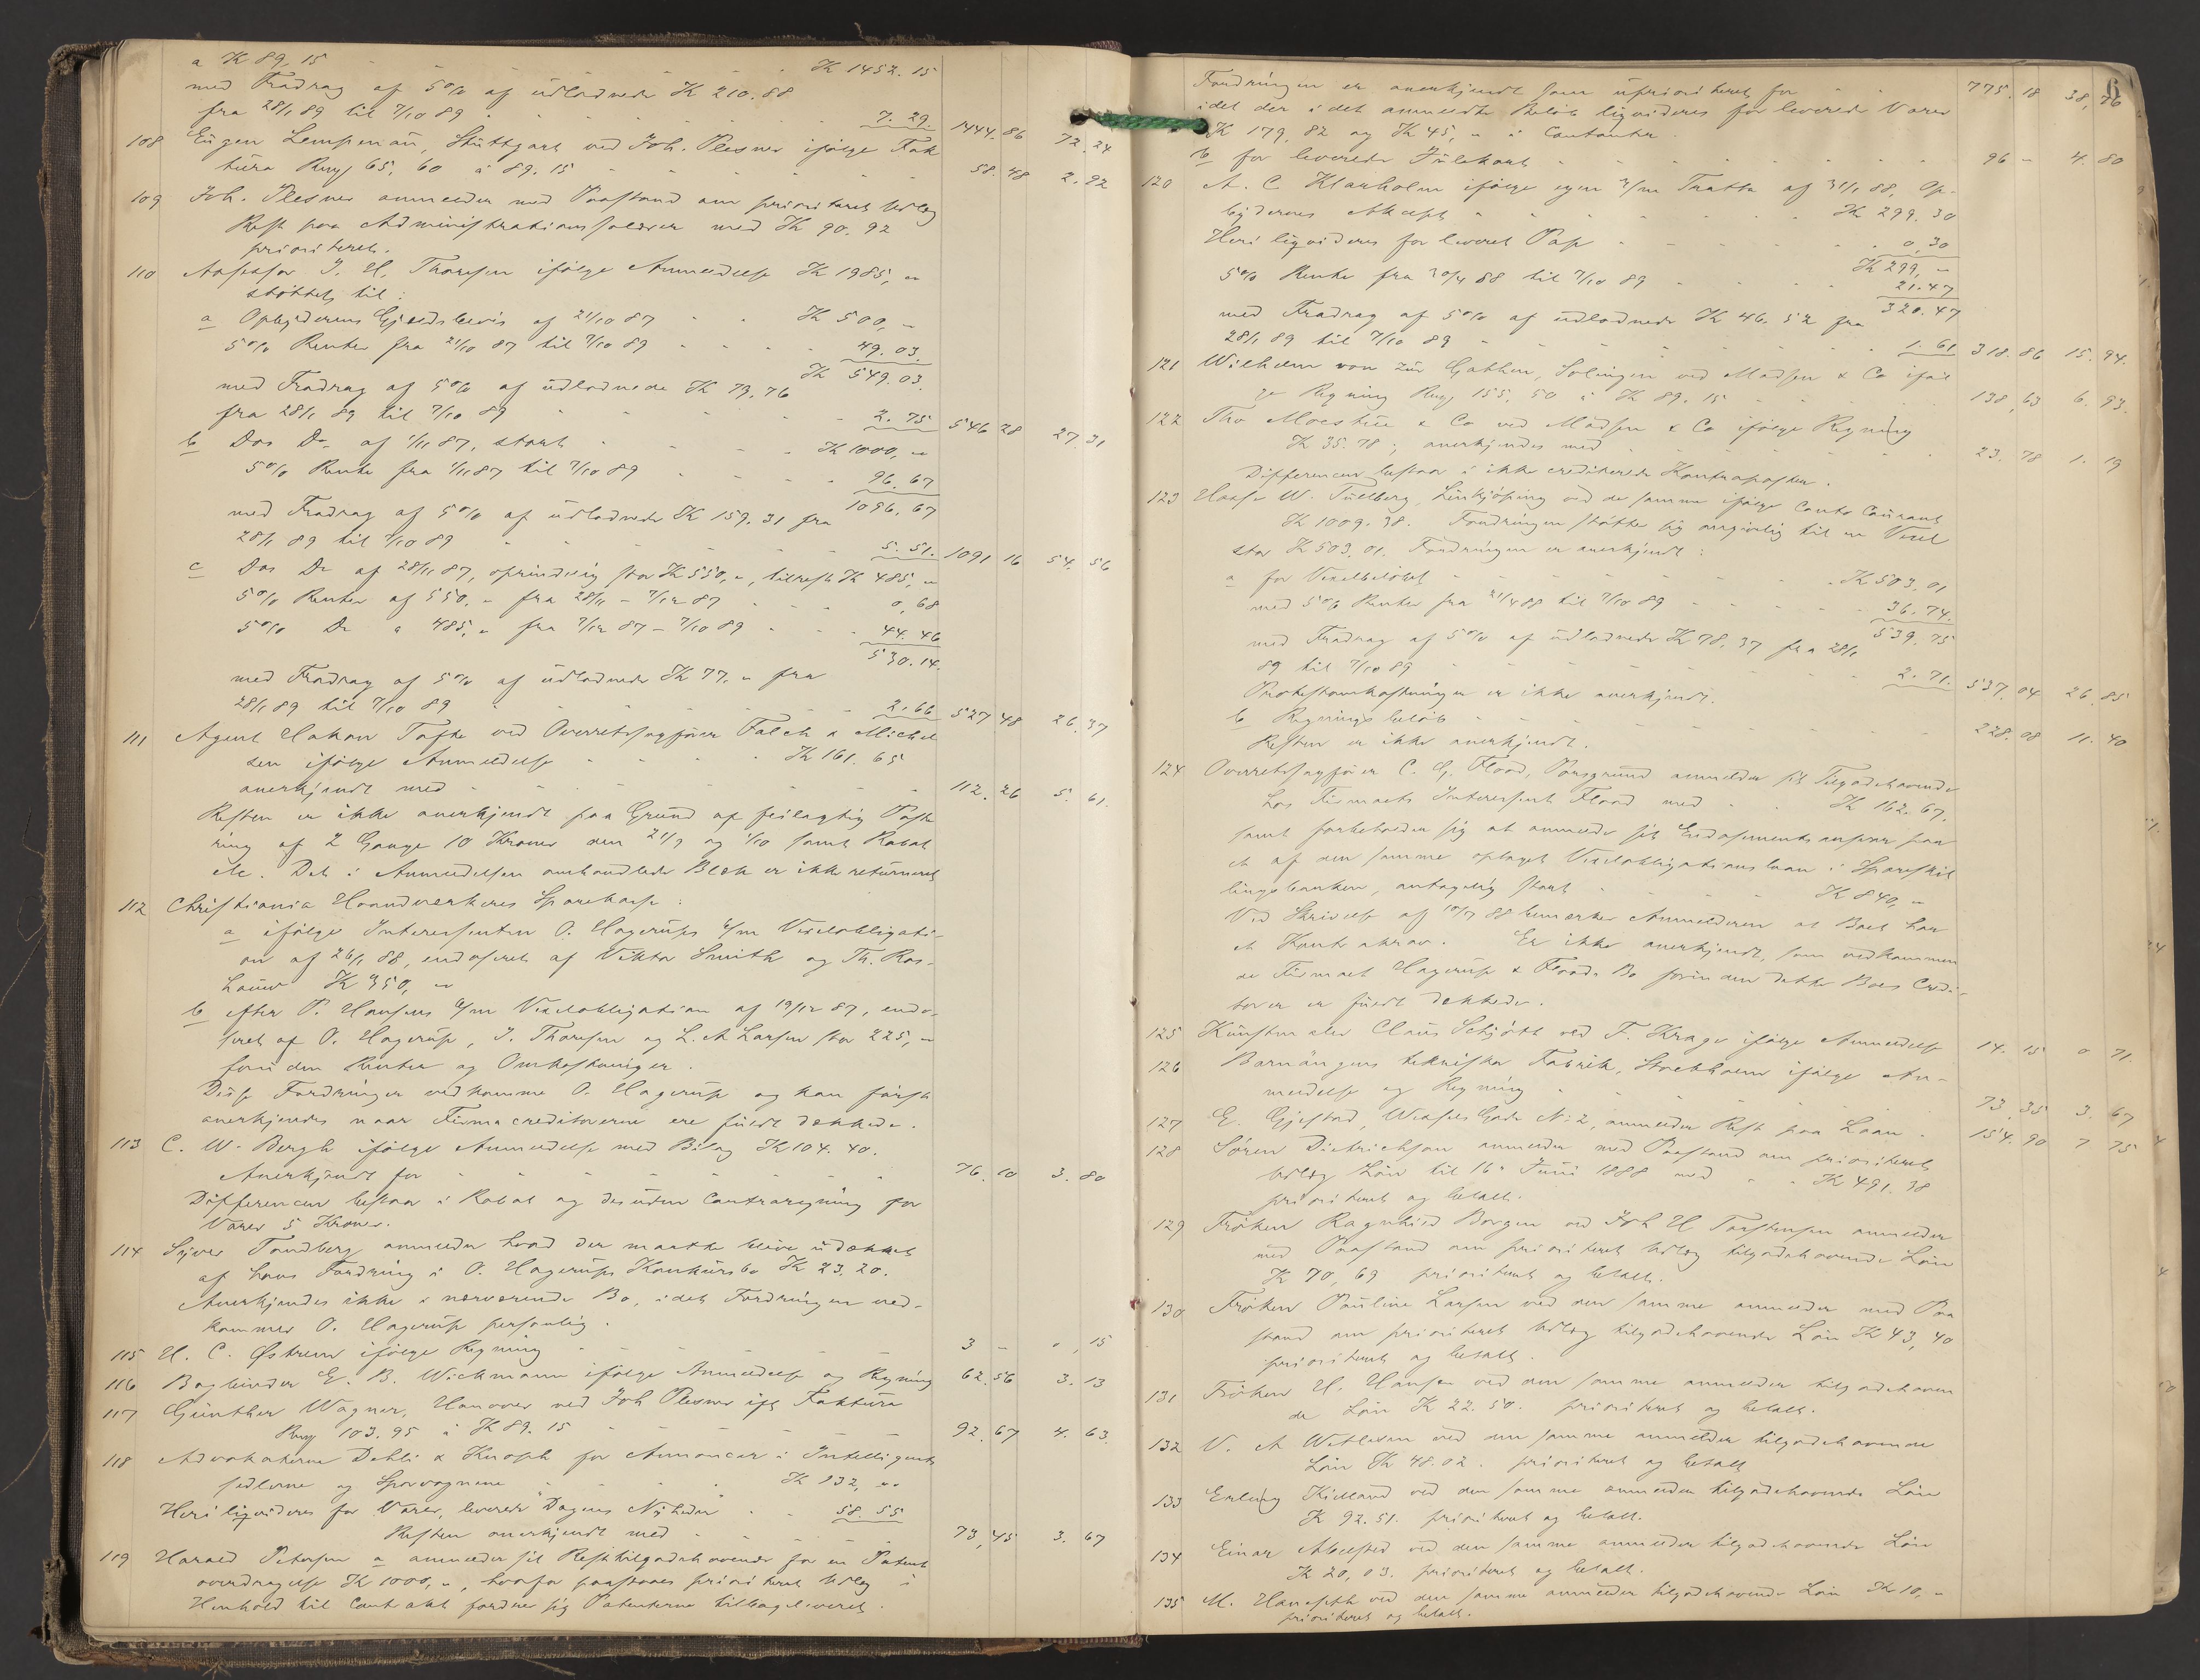 a K 89,15 K 1452.15
med Fradrag af 5% af udlodnede K 210.88
fra 28/1 89 til 7/10 89 7.29. 1444.86 72.24
108 Eugen Lempenau, Stuttgart ved Joh. Plesner ifølge Fak
tura Rmg 65,60 à 89.15 58.48 2.92
109 Joh. Plesner anmelder med Paastand om prioriteret Udlæg
Rest paa Administrationssalærer med K 90.92
prioriteret.
110 Assessor J. H. Thoresen ifølge Anmeldelse K 1985,"
støttet til:
a Opbyderens Gjældsbevis af 21/10 87 K 500,"
5% Renter fra 21/10 87 til 7/10 89 49.03.
K 549.03.
med Fradrag af 5% af udlodnede K 79.76
fra 28/1 89 til 7/10 89 2.75 546 28 27.31
b Dos Do af 1/11 87, stort K 1000,"
5% Rente fra 1/11 87 til 7/10 89 96.67
1096.67
med Fradrag af 5% af udlodnede K 159.31 fra
28/1 89 til 7/10 89 5.51. 1091 16 54.56
c Dos Do af 28/11 87, oprindelig stor K 550,", tilrest K 485,"
5% Renter af 550,- fra 28/11 - 7/12 87 0,68
5% Do a 485," fra 7/12 87 - 7/10 89 44.46
530.14.
med Fradrag af 5% af udlodnede K 77," fra
28/1 89 til 7/10 89 2.66 527 48 26.37
111 Agent Hakon Tofte ved Overretssagfører Falch & Michel
sen ifølge Anmeldelse K 161.65
anerkjendt med 112.26 5.61.
Resten er ikke anerkjendt paa Grund af feilagtig Poste
ring af 2 Gange 10 Kroner den 21/9 og 1/10 samt Rabat
etc. Det i Anmeldelsen omhandlede Blæk er ikke returneret
112 Christiania Haandverkeres Sparekasse:
a ifølge Interessenten O. Hagerups 6/m Vexelobligati-
on af 26/1 88, endosseret af Viktor Smith og Th. Ros-
Lauw K 350,"
b efter P. Hansens 6/m Vexelobligation af 19/12 87, endo-
seret af O. Hagerup, J. Thoresen og L. A Larsen stor 225,"
foruden Renter og Omkostninger.
Disse Fordringer vedkomme O. Hagerup og kan først
anerkjendes naar Firmacreditorerne ere fuldt dækkede.
113 C. W. Bergh ifølge Anmeldelse med Bilag K 104.40.
Anerkjendt for 76.10 3.80
Differencen bestaar i Rabat og desuden Contraregning for
Varer 5 Kroner.
114 Syver Tandberg anmelder hvad der maatte blive udækket
af hans Fordring i O. Hagerups Konkursbo K 23.20.
Anerkjendes ikke i nærværende Bo, idet Fordringen ved-
kommer O. Hagerup personlig.
115 H. C. Østrem ifølge Regning 3 - ",15
116 Bogbinder E. B. Wickmann ifølge Anmeldelse og Regning 62.56 3.13
117 Günther Wagner, Hanover ved Joh Plesner ifl Faktura
Rmg 103.95 à K 89.15 92.67 4.63.
118 Advokaterne Dehli & Knoph for Annoncer i Intelligents
sedlerne og Sporvognene K 132,".
Heri liqvideres for Varer, leverede "Dagens Nyheder" 58.55
Resten anerkjendt med 73,45 3.67
119 Harald Petersen a anmelder sit Resttilgodehavende for en Patent
overdragelse K 1000,", hvorfor paastaaes prioriteret Udlæg i
Henhold til Contrakt fordrer sig Patenterne tilbageleveret.
6
Fordringen er anerkjendt som uprioriteret for 775.18 38,76
idet der i det anmeldte Beløb liqvideres for leverede Varer
K 179.82 og K 45," i Contanter.
b for leverede Julekort 96 - 4.80
120 A. C Klarholm ifølge egen 3/m Tratte af 31/1 88, Op-
byderens Akcept K 299.30
Heri liqvideres for leveret Pap 0,30
K 299,"
5% Rente fra 30/4 88 til 7/10 89 21.47
320.47
med Fradrag af 5% af udlodnede K 46.52 fra
28/1 89 til 7/10 89 1.61 318.86 15.94.
121 Wilhelm von zur Gathen, Solingen ved Madsen & Co iføl
ge Regning Rmg 155,50 à K 89.15 138,63 6.93.
122 Tho Moestue & Co ved Madsen & Co ifølge Regning
K 35.78; anerkjendes med 23.78 1.19
Differencen bestaar i ikke crediterede Kontraposter.
123 Hasse W. Tullberg, Linkjöping ved de samme ifølge Conto Courant
K 1009.38. Fordringen støtter sig angivelig til en Vexel
stor K 503.01. Fordringen er anerkjendt:
a for Vexelbeløbet K 503,01
med 5% Renter fra 21/4 88 til 7/10 89 36.74.
539.75
med Fradrag af 5% af udlodnede K 78.37 fra 28/1
89 til 7/10 89 2.71. 537.04 26.85
Protestomkostninger er ikke anerkjendt.
b Regningsbeløb 228.08 11.40
Resten er ikke anerkjendt.
124 Overretssagfører C. G. Flood, Porsgrund anmelder sit Tilgodehavende
hos Firmaets Interessent Flood med K 162.67.
samt forbeholder sig at anmelde sit Endosementsansvar paa
et af den samme optaget Vexelobligationslaan i Spareskil
lingsbanken, antagelig stort K 840,"
Ved Skrivelse af 10/7 88 bemærker Anmelderen at Boet har
et Kontrakrav. Er ikke anerkjendt, som vedkommen
de Firmaet Hagerup & Floods Bo førinden dette Boes Credi-
torer er fuldt dækkede.
125 Kunstmaler Claus Schjött ved F. Krage ifølge Anmeldelse 14.15 0 71.
126 Barnängens tekniska Fabrik, Stockholm ifølge An-
meldelse og Regning 73.35 3.67
127 E. Gjestad, Wessels Gade N: 2, anmelder Rest paa Laan 154.90 7 75
128 Søren Dietrichson anmelder med Paastand om prioriteret
Udlæg Løn til 16" Juni 1888 med K 491.38
prioriteret og betalt.
129 Frøken Ragnhild Borgen ved Joh H Torstensen anmelder
med Paastand om prioriteret Udlæg tilgodehavende Løn
K 70,69 prioriteret og betalt.
130 Frøken Pauline Larsen ved den samme anmelder med Paa
stand om prioriteret Udlæg tilgodehavende Løn K 43,40
prioriteret og betalt.
131 Frøken H. Hansen ved den samme anmelder tilgodehaven
de Løn K 22.50. prioriteret og betalt.
132 V. A Wetlesen ved den samme anmelder tilgodehavende
Løn K 48.02. prioriteret og betalt
133 Erling Kielland ved den samme anmelder tilgodehavende Løn
K 92.51. prioriteret og betalt.
134 Einar Abelsted ved den samme anmelder tilgodehavende Løn
K 20,03. prioriteret og betalt.
135 M. Hanseth ved den samme anmelder tilgodehavende Løn K 10,"
prioriteret og betalt.